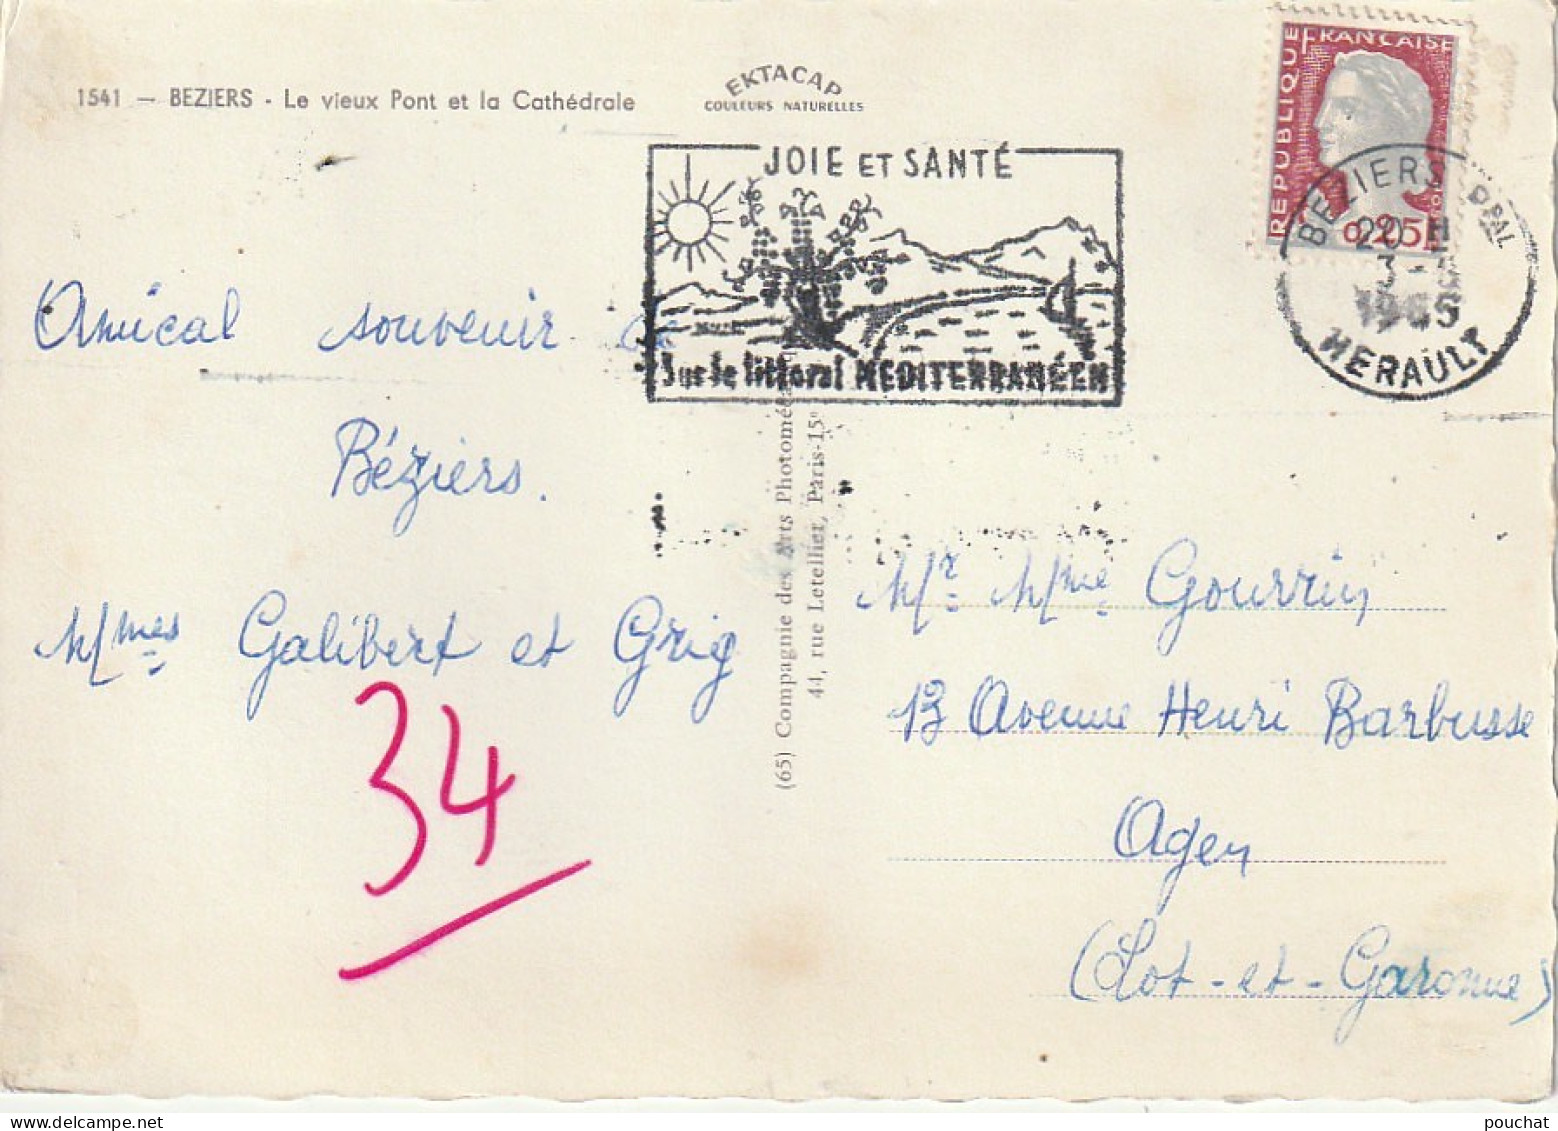 1541 — BEZIERS - Le vieux Pont et la Cathédrale
EKTACAP
COULEURS NATURELLES
JOIE ET SANTÉ
Sur le littoral MEDITERRANÉEN
REPUBLIQUE FRANCAISE
0,25
BEZIERS PPAL
20 H
1965
HERAULT
Amical souvenir de
Béziers.
Mmes Galibert et Grig
34
(65) Compagnie des Arts Photoméca
44, rue Letellier, Paris-15e
Mr. Mme Gourrin
13 Avenue Henri Barbusse
Agen
(Lot-et-Garonne)
pouchat